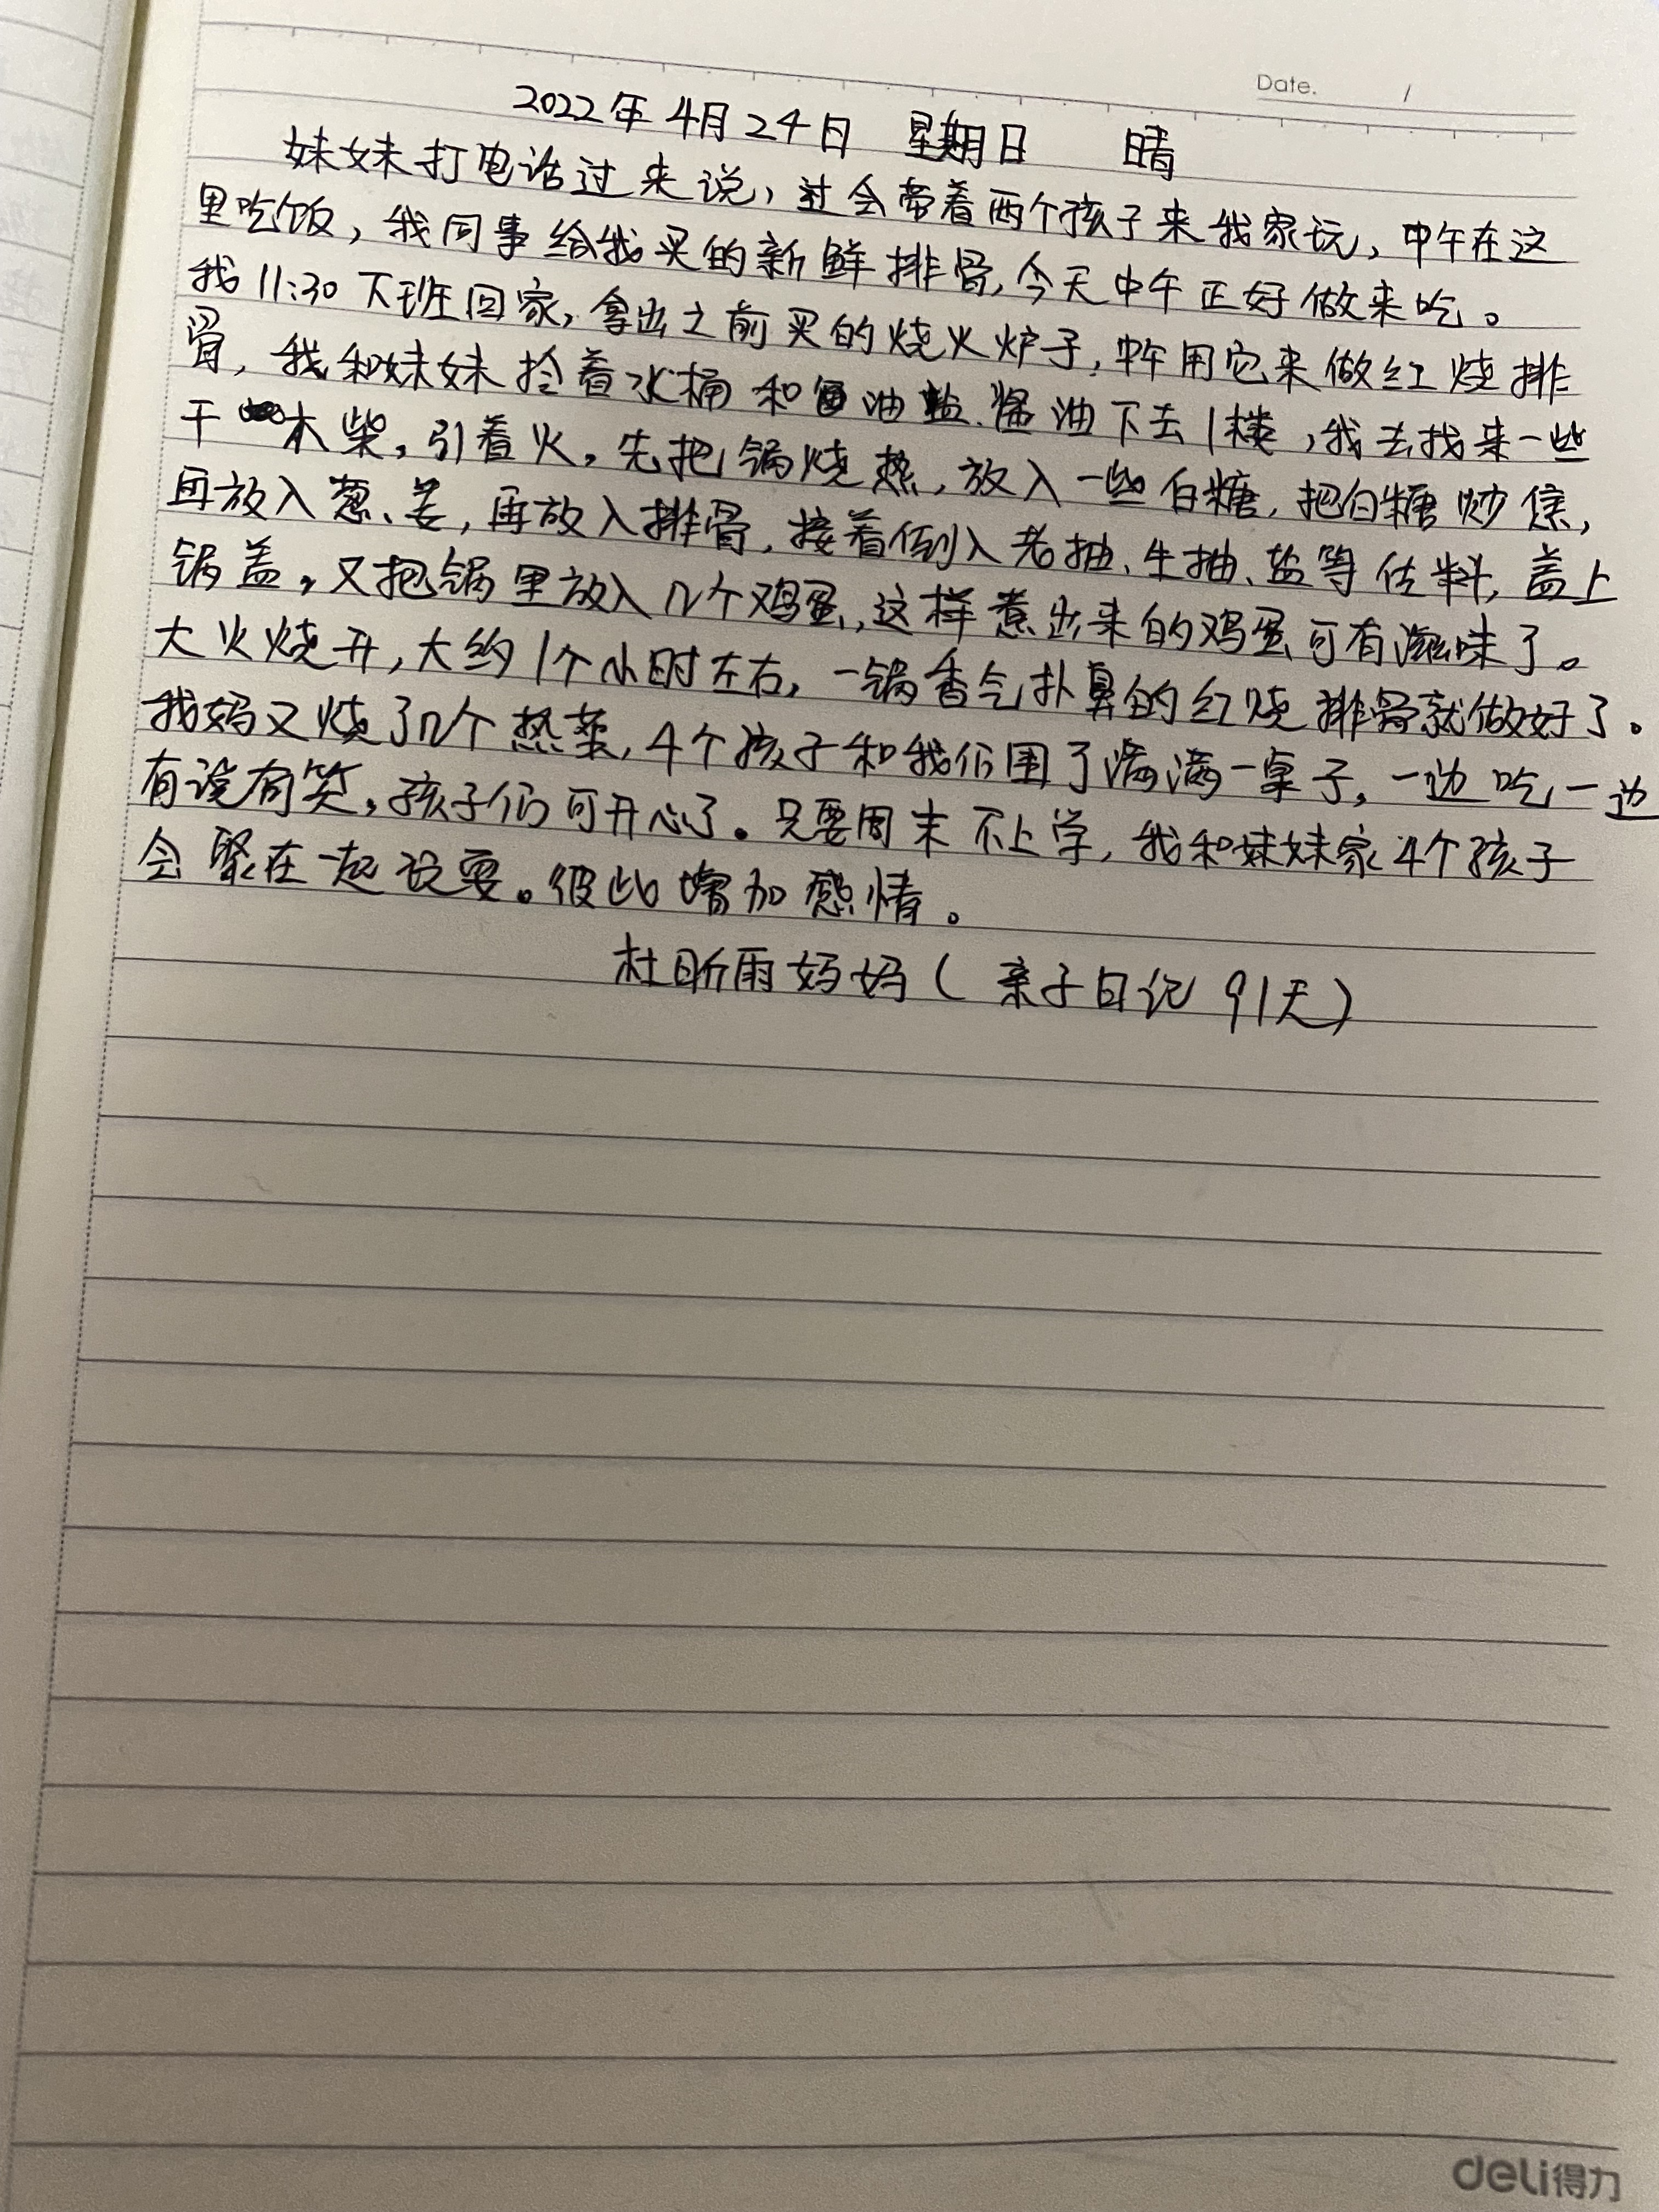 Date. /
2022年4月24日 星期日 晴
妹妹打电话过来说，过会带着两个孩子来我家玩，中午在这
里吃饭，我同事给我买的新鲜排骨，今天中午正好做来吃。
我11:30下班回家，拿出之前买的烧火炉子，中午用它来做红烧排
骨，我和妹妹拎着水桶和油盐、酱油下去1楼，我去找来一些
干木柴，引着火，先把锅烧热，放入一些白糖，把白糖炒焦，
再放入葱、姜，再放入排骨，接着倒入老抽、生抽、盐等佐料，盖上
锅盖，又把锅里放入几个鸡蛋，这样煮出来的鸡蛋可有滋味了。
大火烧开，大约1个小时左右，一锅香气扑鼻的红烧排骨就做好了。
我妈又烧了几个热菜，4个孩子和我们围了满满一桌子，一边吃一边
有说有笑，孩子们可开心了。只要周末不上学，我和妹妹家4个孩子
会聚在一起玩耍。彼此增加感情。
杜昕雨妈妈（亲子日记91天）
deli得力